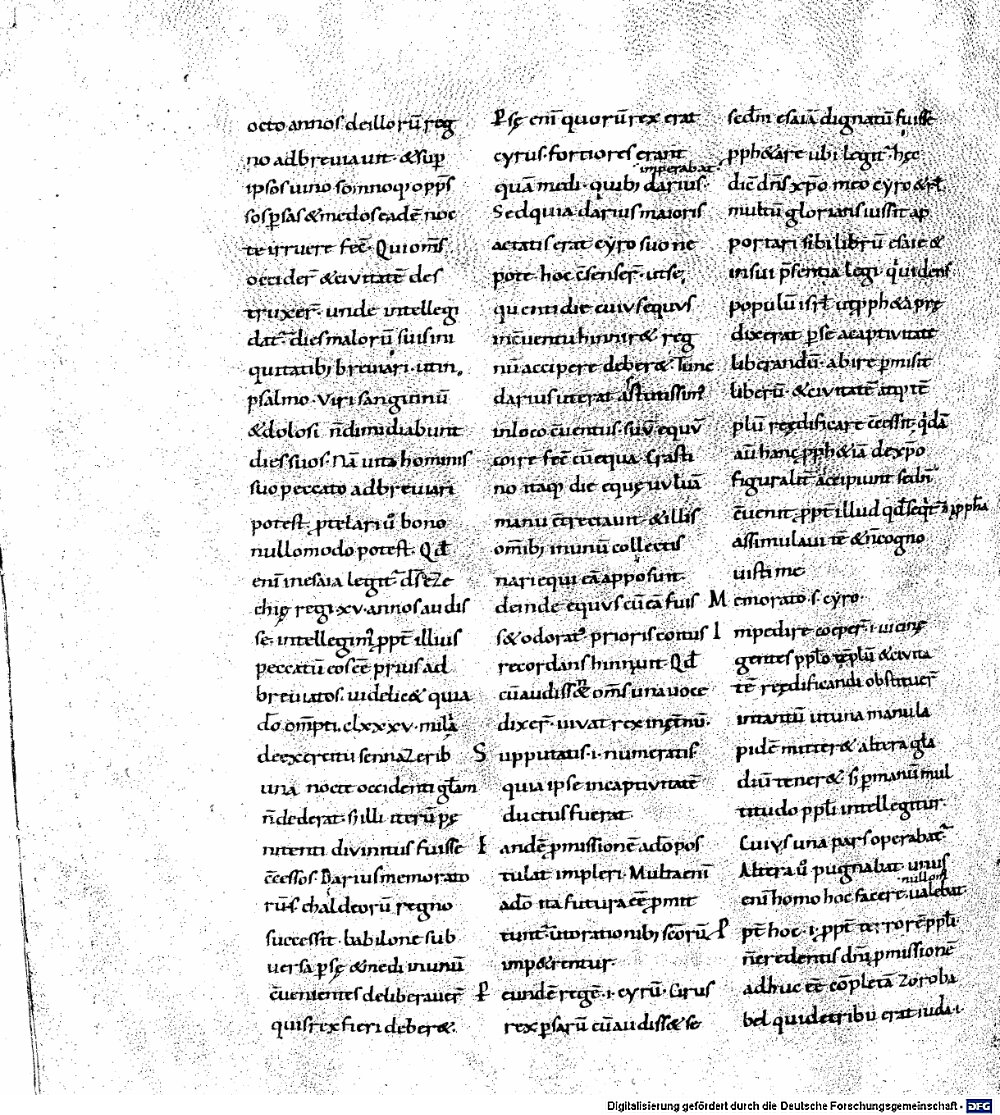 octo annos de illorū reg
no adbreuiauit· &sup
ipsos uino somnoq; opp̄s
sos p̱sas &medos eadē noc
te irruere fec̄· Qui om̄s
occider̄ &ciuitatē des
truxer̄· unde intellegi
dat̄· dies malorū suis ini
quitatib; breuiari· ut in
psalmo· Viri sanguinū
&dolosi n̄ dimidiabunt
dies suos· Nā uita hominis
suo peccato adbreuiari
potest· ptelari ū bono
nullomodo potest· Qd̄
eni in esaia legit̄ d̄s eze
chię regi·xv·annos addidis
se· intellegim; ppt̄ illius
peccatū eos eē prius ad
breuiatos· uidelic& quia
dō om̄pti clxxxv·milā
de exercitu sennazerib
una nocte occidenti gl̄am
n̄ dederat· s; illi iterū pę
nitenti diuinitus fuisse
c̄cessos· Darius memorato
rū·s· chaldeorū regno
successit· babilone sub
uersa p̱sę &medi inunū
c̄uenientes deliberauer̄
quis rex fieri deber&·
P̱sę eni quorū rex erat
cyrus· fortiores erant
imperabat·
quā medi· quib; darius·
Sed quia darius maioris
aetatis erat cyro suo ne
pote· hoc c̄senser̄· ut se
quenti die cuius equus
in c̄uentu hinnir& reg
nū accipere deber&· Tunc
darius ut erat astutissim;
in loco c̄uentus· suū equū
coire fec̄ cū equa· Crasti
no itaq; die equę uuluā
manu c̄trectauit· &illis
om̄ib; inunū collectis
nari equi eā apposuit·
deinde equus cū eā fuis
s& odorat; prioris coitus
recordans hinniuit· Qd̄
cū audiss& om̄s una uoce
dixer̄· uiuat rex in ęt̄nū·
Supputatis·i·numeratis
quia ipse in captiuitatē
ductus fuerat·
Eandē p̱missionē adō pos
tulat impleri· Multa eni
adō ita futura eē p̱mit
tunt̄· ut orationib; sc̄orū
imp&rentur·
P̱ eundē regē·i·cyrū· Cirus
rex p̱sarū cū audiss& se
sedm̄ esaiā dignatū fuisse
pph&are ubi legit̄· hęc
dic̄ dn̄s xp̄o meo cyro &rl̄·
multū glorians iussit ap
portari sibi librū esaie &
in sui p̄sentia legi· qui dens
populū isrl̄· ut pph&a prę
dixerat p̱ se a captiuitate
liberandū· abire p̱misit
liberū· &ciuitatē atq; tē
plū reędificare c̄cessit· q̇dā
aū hanc pph&iā de xp̄o
figuralit̄ accipiunt sed n̄
c̄uenit ppt̄ illud qd̄ seqt̄ in pph̄a
assimulaui te &n̄ cogno
uisti me
Memorato·s· cyro·
Impedire coeper̄·i·uicinę
gentes pplō tēplū &ciuita
tē reędificandi obstituer̄
intantū ut una manu la
pidē mitter& altera gla
diū tener&· s; p̱ manū mul
titudo ppl̄i intellegitur·
Cuius una pars operabat̄·
Altera ū pugnabat· unus
nullom̄
eni homo hoc facere· ualebat·
Ppt̄ hoc·i·ppt̄ terrorē ppl̄i
n̄ credentis dn̄i p̱missione
adhuc eē cōpletā· Zoroba
bel qui de tribu erat iuda·i·
Digitalisierung gefördert durch die Deutsche Forschungsgemeinschaft - DFG